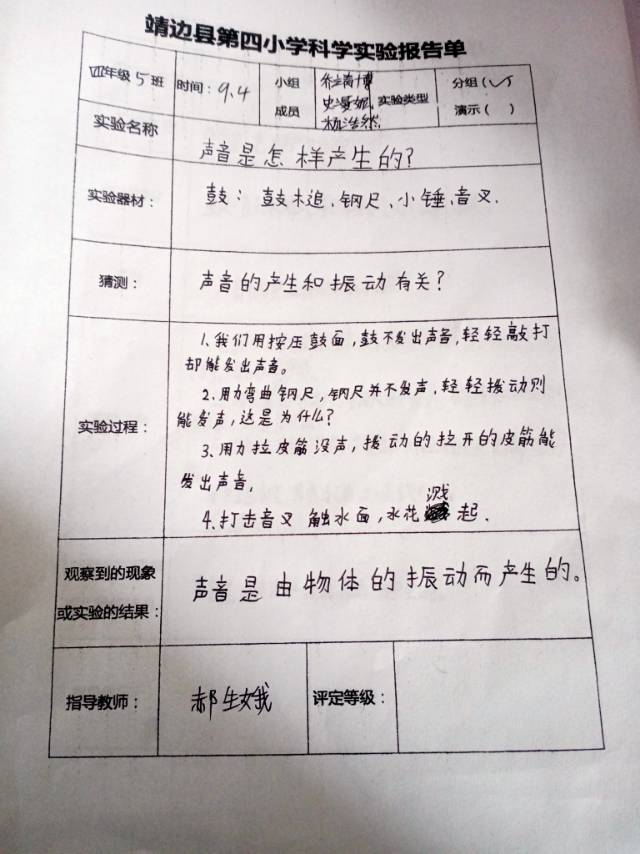 靖边县第四小学科学实验报告单
年级5班 时间：9.4 小组成员 实验类型 分组（✓） 演示（ ）
实验名称 声音是怎样产生的？
实验器材： 鼓：鼓木追、钢尺、小锤、音叉.
猜测： 声音的产生和振动有关？
实验过程： 1、我们用按压鼓面，鼓不发出声音，轻轻敲打
却能发出声音。
2、用力弯曲钢尺，钢尺并不发声，轻轻拨动则
能发声，这是为什么？
3、用力拉皮筋没声，拨动的拉开的皮筋能
发出声音.
4、打击音叉 触水面，水花溅起.
观察到的现象
或实验的结果： 声音是由物体的振动而产生的。
指导教师： 评定等级：